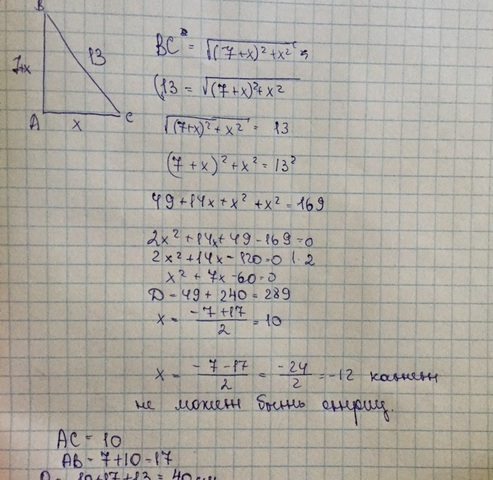 B
7+x
13
A
x
C
BC = √((7+x)²+x²)
(13 = √((7+x)²+x²
√((7+x)²+x²) = 13
(7+x)²+x²=13²
49+14x+x²+x²=169
2x²+14x+49-169=0
2x²+14x-120=0 |:2
x²+7x-60=0
D=49+240=289
x = (-7+17)/2 = 10
x = (-7-17)/2 = -24/2 = -12
не может быть отриц.
AC = 10
AB = 7+10=17
10+17+13=40